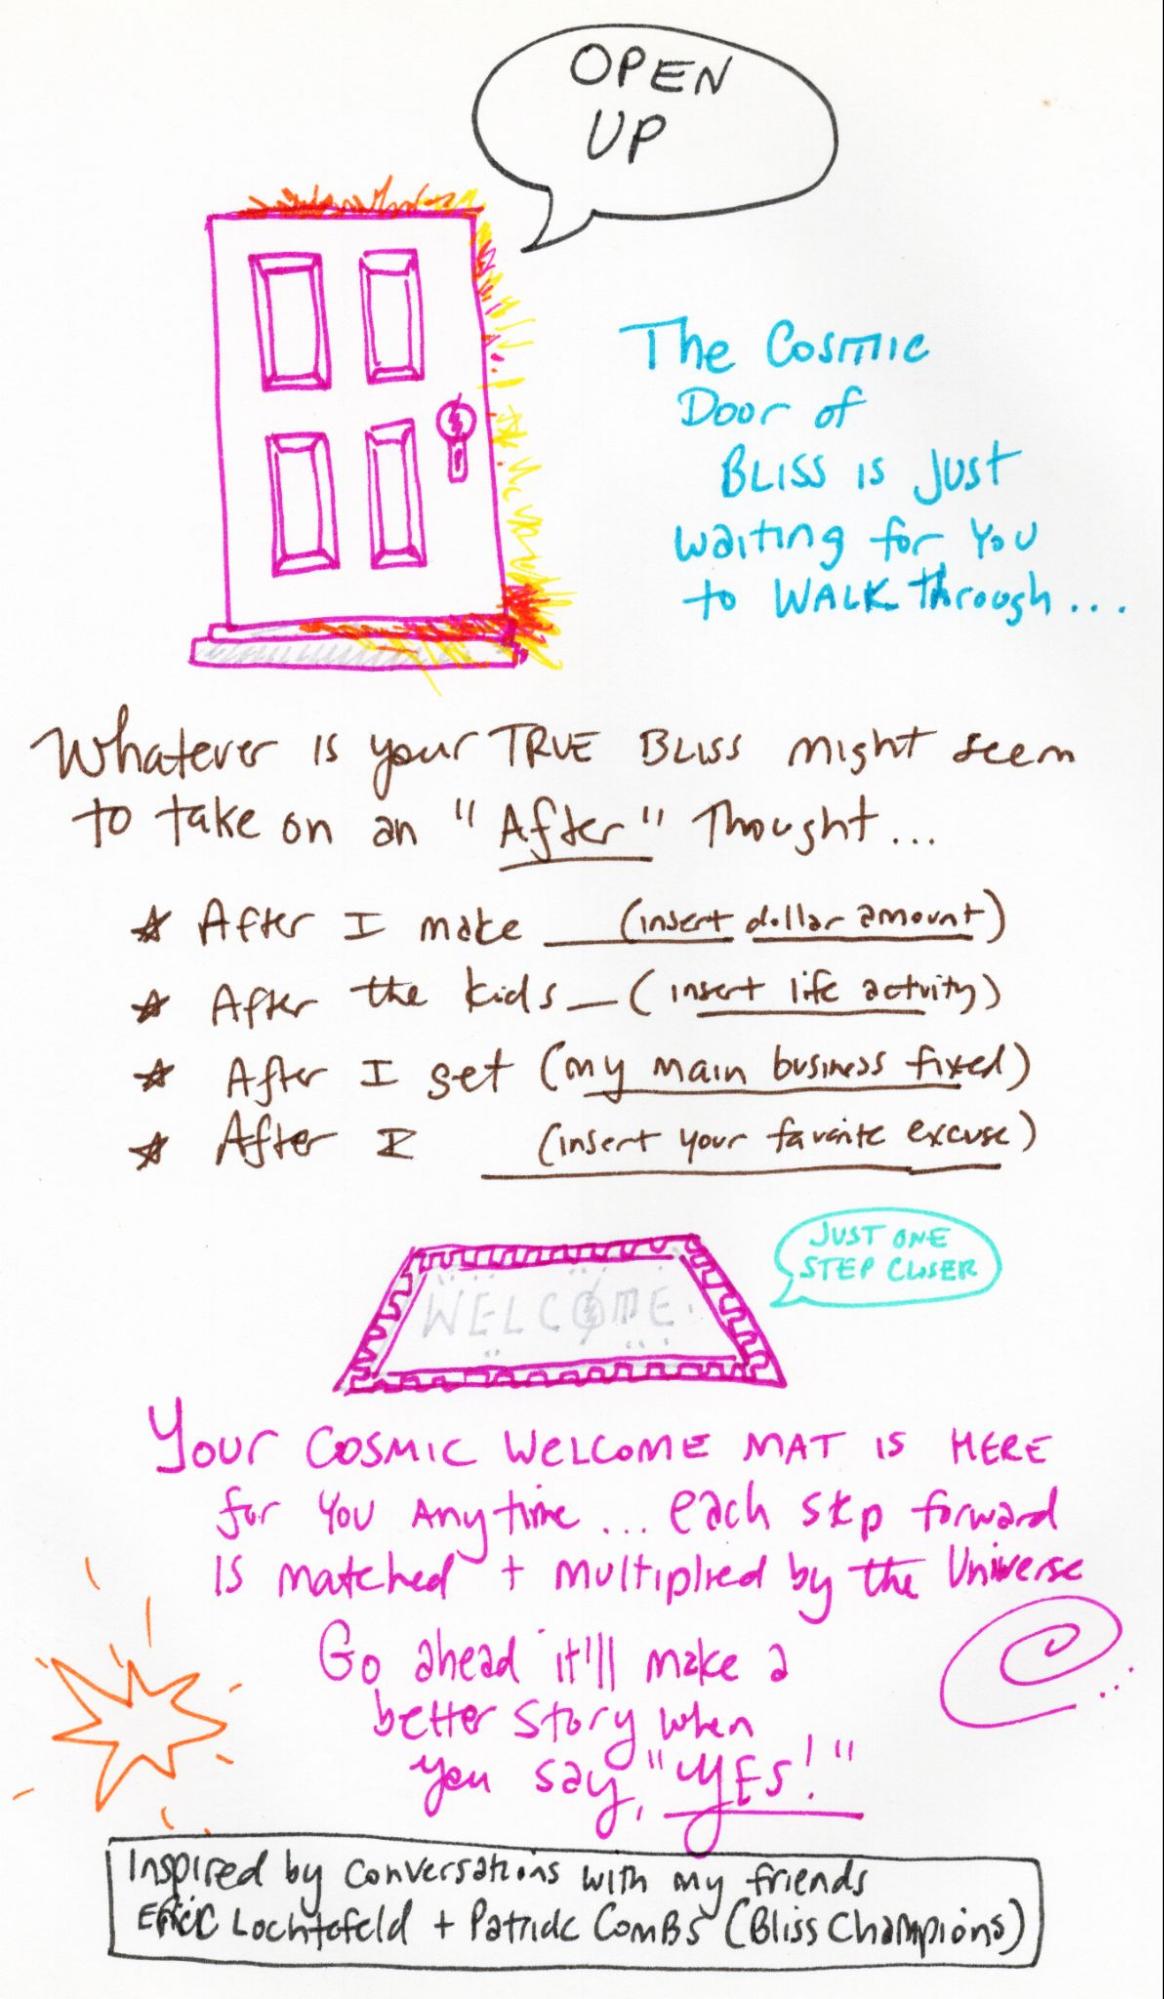 OPEN
UP
The Cosmic
Door of
BLISS is Just
waiting for You
to WALK Through...
Whatever is your TRUE BLISS might seem
to take on an "After" Thought...
* After I make ___ (insert dollar amount)
* After the kids _ (insert life activity)
* After I get (my main business fixed)
* After I ___ (insert your favorite excuse)
WELCOME
JUST ONE
STEP CLOSER
Your COSMIC WELCOME MAT IS HERE
for You Anytime... each step forward
is matched + multiplied by the Universe
Go ahead it'll make a
better story when
you say, "YES!"
Inspired by conversations with my friends
Eric Lochtefeld + Patrick ComBs (Bliss Champions)